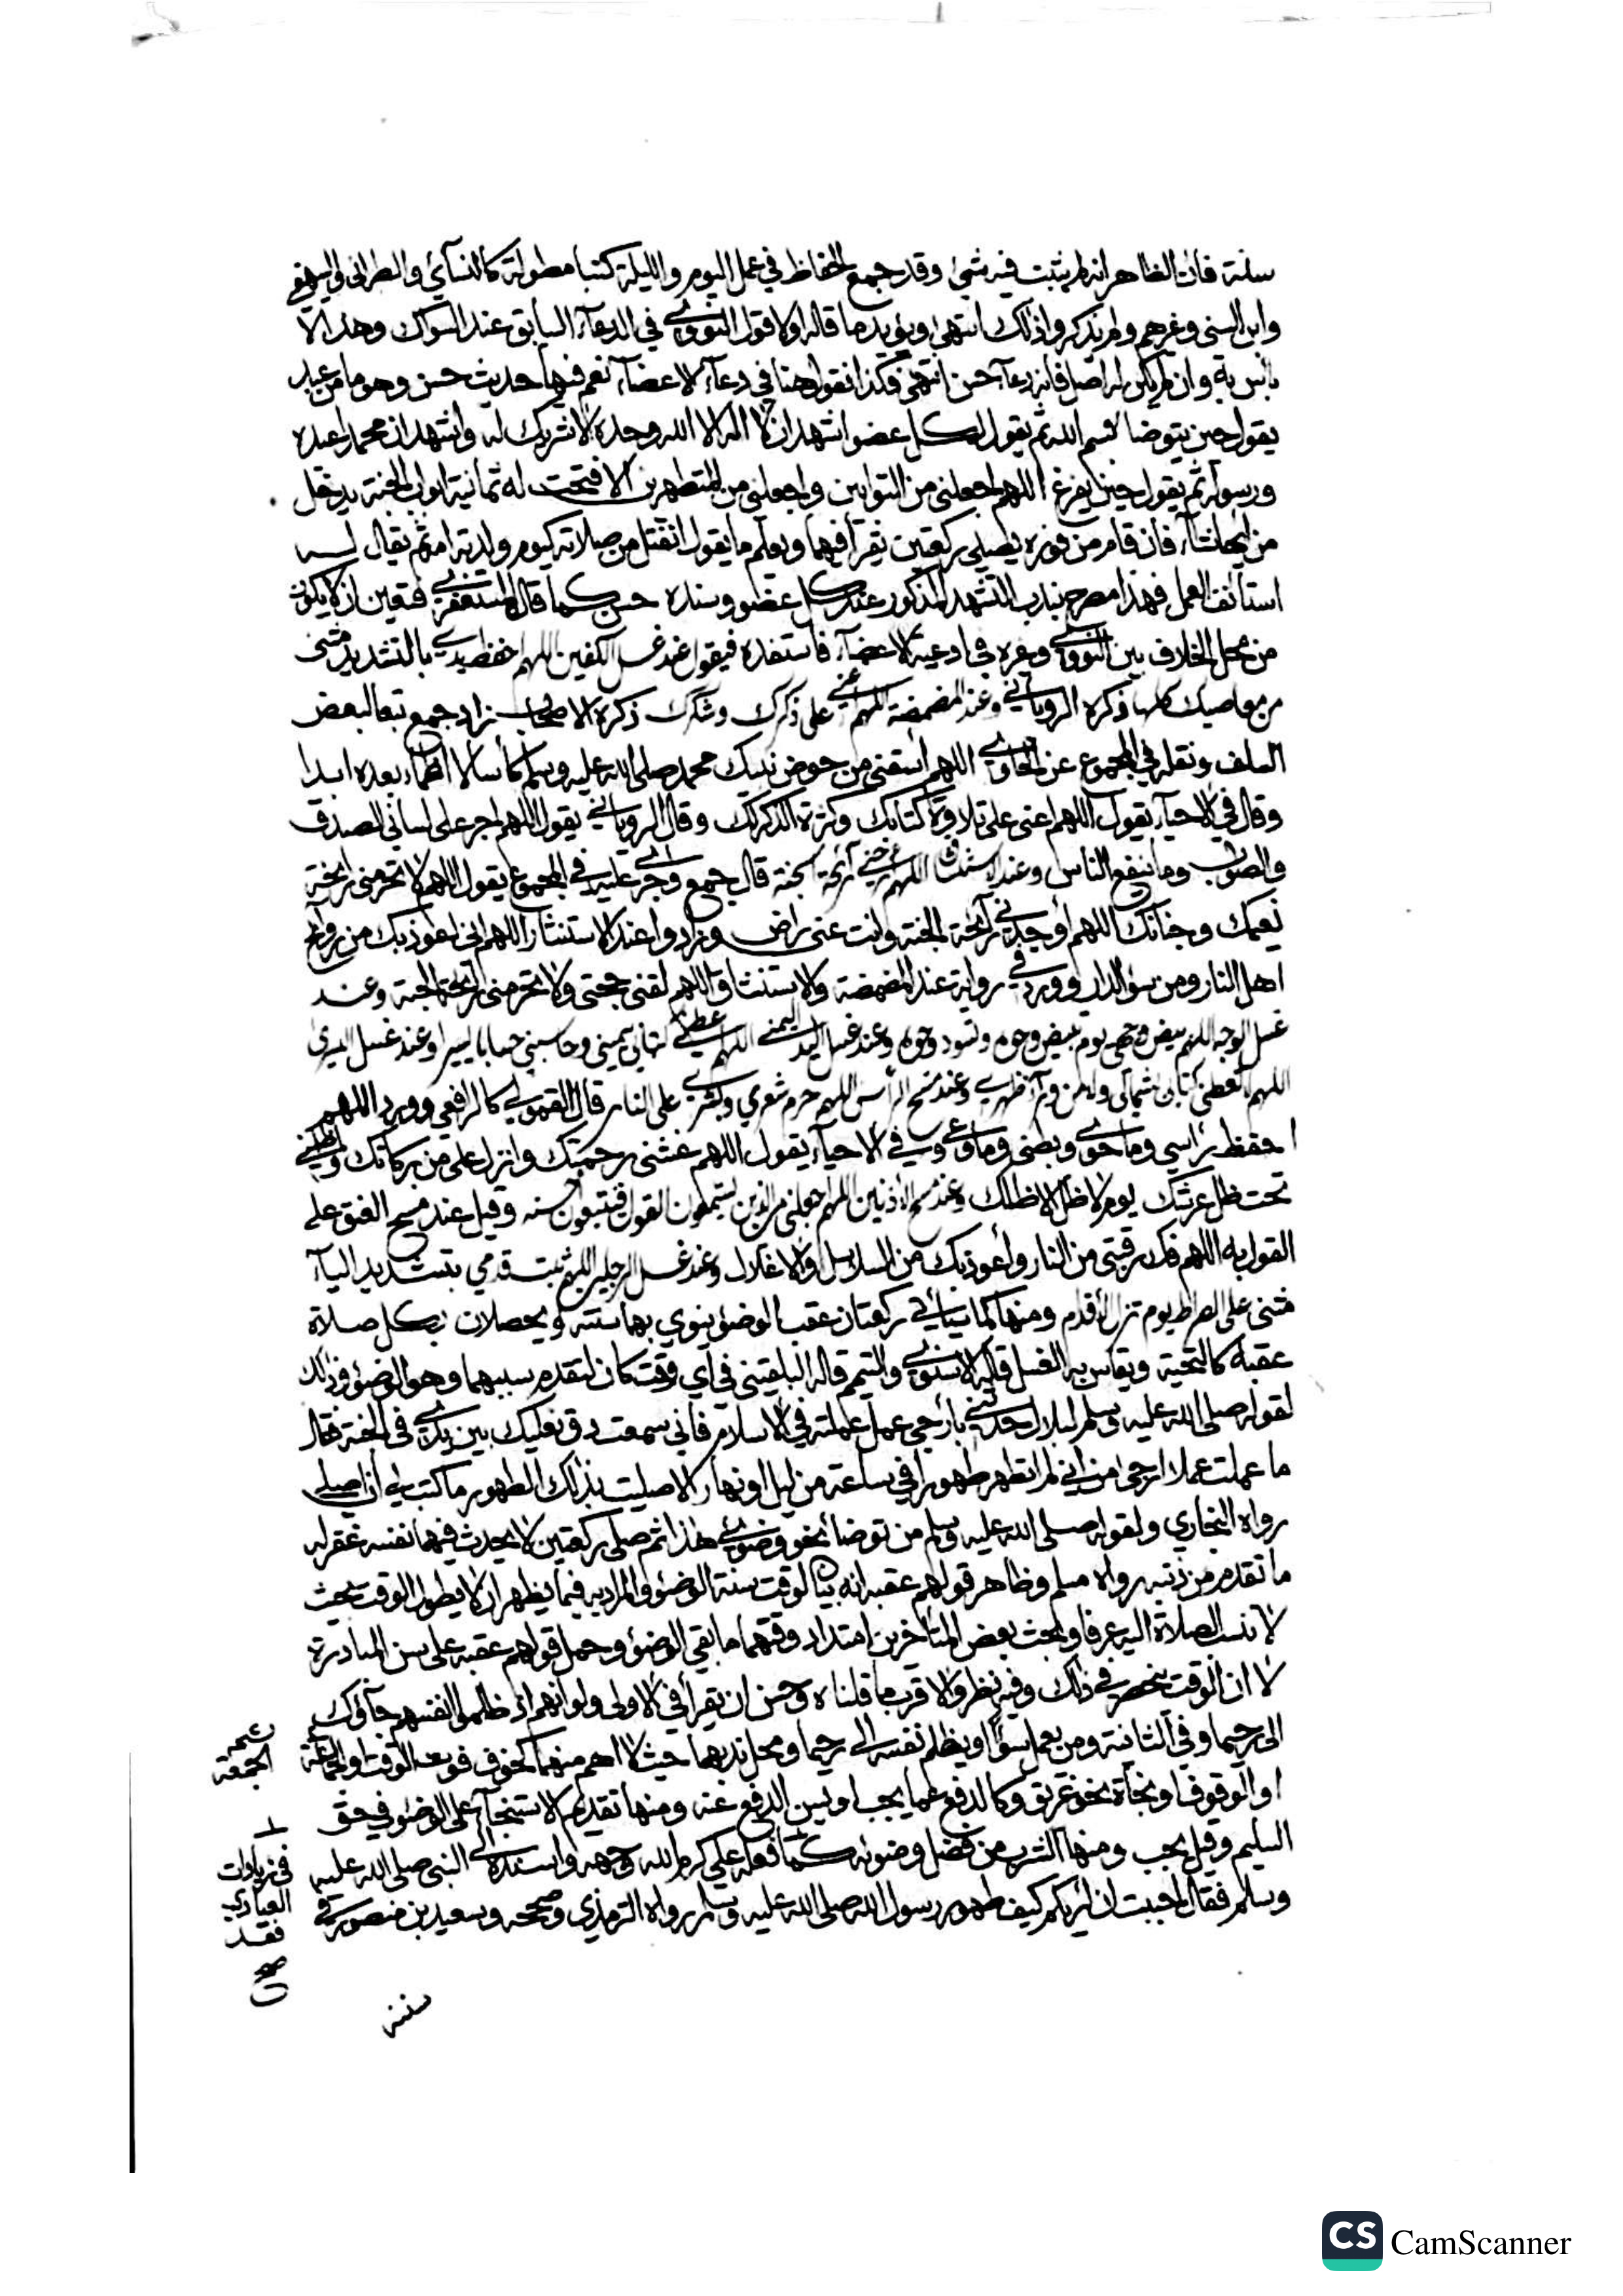 سنة فان الظاهر انه لم يثبت فيه شيء وقد جمع الحفاظ في عمل اليوم والليلة كتبا مطولة كالنسآئي والطبراني والبيهقي
وابن السني وغيرهم ولم يذكروا ذلك انتهى ويؤيد ما قاله اولا قول النووي في الدعآء السابق عند السواك وهذا لا
باس به وان لم يكن له اصل فانه دعآء حسن انتهى فكذا نقول هنا في دعآء الاعضآء نعم فيها حديث حسن وهو ما من عبد
يقول حين يتوضا بسم الله ثم يقول لكل عضو اشهد ان لا اله الا الله وحده لا شريك له واشهد ان محمدا عبده
ورسوله ثم يقول حين يفرغ اللهم اجعلني من التوابين واجعلني من المتطهرين الا فتحت له ثمانية ابواب الجنة يدخل
من ايها شآء فان قام من فوره يصلي ركعتين يقرأ فيهما ويعلم ما يقول انفتل من صلاته كيوم ولدته امه ثم يقال له
استانف العمل فهذا مصرح بندب التشهد المذكور عند كل عضو وسنده حسن كما قال المستغفري فتعين ان لا يكون
من محل الخلاف بين النووي وغيره في ادعية الاعضآء فاستفده فيقول عند غسل الكفين اللهم احفظ يدي بالتشديد مثنى
من معاصيك كلها ذكره الروياني وعند المضمضة اللهم اعني على ذكرك وشكرك ذكره الاصحاب زاد جمع تبعا لبعض
السلف ونقله في المجموع عن الحاوي اللهم اسقني من حوض نبيك محمد صلى الله عليه وسلم كأسا لا اظمأ بعده ابدا
وقال في الاحيآء يقول اللهم اعني على تلاوة كتابك وكثرة الذكر لك وقال الروياني يقول اللهم اجر على لساني الصدق
والصواب وما ينفع الناس وعند الاستنشاق اللهم ارحني رآئحة الجنة قال جمع وجرى عليه في المجموع يقول اللهم لا تحرمني رائحة
نعمك وجنانك اللهم أوجد لي رآئحة الجنة وانت عني راض وزادوا عند الاستنثار اللهم اني اعوذ بك من روائح
اهل النار ومن سوء الدار وورد في رواية عند المضمضة والاستنشاق اللهم لقني حجتي ولا تحرمني رائحة الجنة وعند
غسل الوجه اللهم بيض وجهي يوم تبيض وجوه وتسود وجوه وعند غسل اليد اليمنى اللهم اعطني كتابي بيميني وحاسبني حسابا يسيرا وعند غسل اليسرى
اللهم لا تعطني كتابي بشمالي ولا من ورآء ظهري وعند مسح الرأس اللهم حرم شعري وبشري على النار قال القمولي كالرافعي وورد اللهم
احفظ رأسي وما حوى وبطني وما وعى وفي الاحيآء يقول اللهم غشني برحمتك وانزل علي من بركاتك واظلني
تحت ظل عرشك يوم لا ظل الا ظلك وعند مسح الاذنين اللهم اجعلني من الذين يستمعون القول فيتبعون احسنه وقيل عند مسح العنق على
القول به اللهم فك رقبتي من النار وأعوذ بك من السلاسل والاغلال وعند غسل الرجلين اللهم ثبت قدمي بتشديد اليآء
مثنى على الصراط يوم تزل الأقدام ومنها كما سيأتي ركعتان عقب الوضوء ينوي بهما سنته ويحصلان بكل صلاة
عقبه كالتحية ويقاس به الغسل قاله الاسنوي والتيمم قاله البلقيني في اي وقت كان لتقدم سببهما وهو الوضوء وذلك
لقوله صلى الله عليه وسلم لبلال حدثني بأرجى عمل عملته في الاسلام فاني سمعت دق نعليك بين يدي في الجنة فقال
ما عملت عملا ارجى من اني لم اتطهر طهورا في ساعة من ليل او نهار الا صليت بذلك الطهور ما كتب لي أن اصلي
رواه البخاري ولقوله صلى الله عليه وسلم من توضا نحو وضوئي هذا ثم صلى ركعتين لا يحدث فيهما نفسه غفر له
ما تقدم من ذنبه رواه مسلم وظاهر قولهم عقبه انه بيان لوقت سنة الوضوء والمراد به فيما يظهر ان لا يطول الوقت بحيث
لا تنسب الصلاة اليه عرفا وبحث بعض المتأخرين امتداد وقتهما ما بقي الوضوء وحمل قولهم عقبه على سن المبادرة
لا ان الوقت ينحصر في ذلك وفيه نظر والاقرب ما قلناه وحسن ان يقرأ في الاولى ولو انهم اذ ظلموا انفسهم جآؤك
الى رحيما وفي الثانية ومن يعمل سوءا او يظلم نفسه الى رحيما ومحل ندبهما حيث لا اهم منهما كخوف فوت الوقت او الجماعة
او الوقوف او نجاة نحو غريق وكالدفع عما يجب او يسن الدفع عنه ومنها تقديم الاستنجآء على الوضوء في حق
السليم وقيل يجب ومنها الشرب من فضل وضوئه كما فعله علي كرم الله وجهه واسنده الى النبي صلى الله عليه
وسلم فقال احببت ان اريكم كيف طهور رسول الله صلى الله عليه وسلم رواه الترمذي وصححه وسعيد بن منصور في
الجمعة
في زيادات
العبادي
فقد
صح
سننه
CS CamScanner